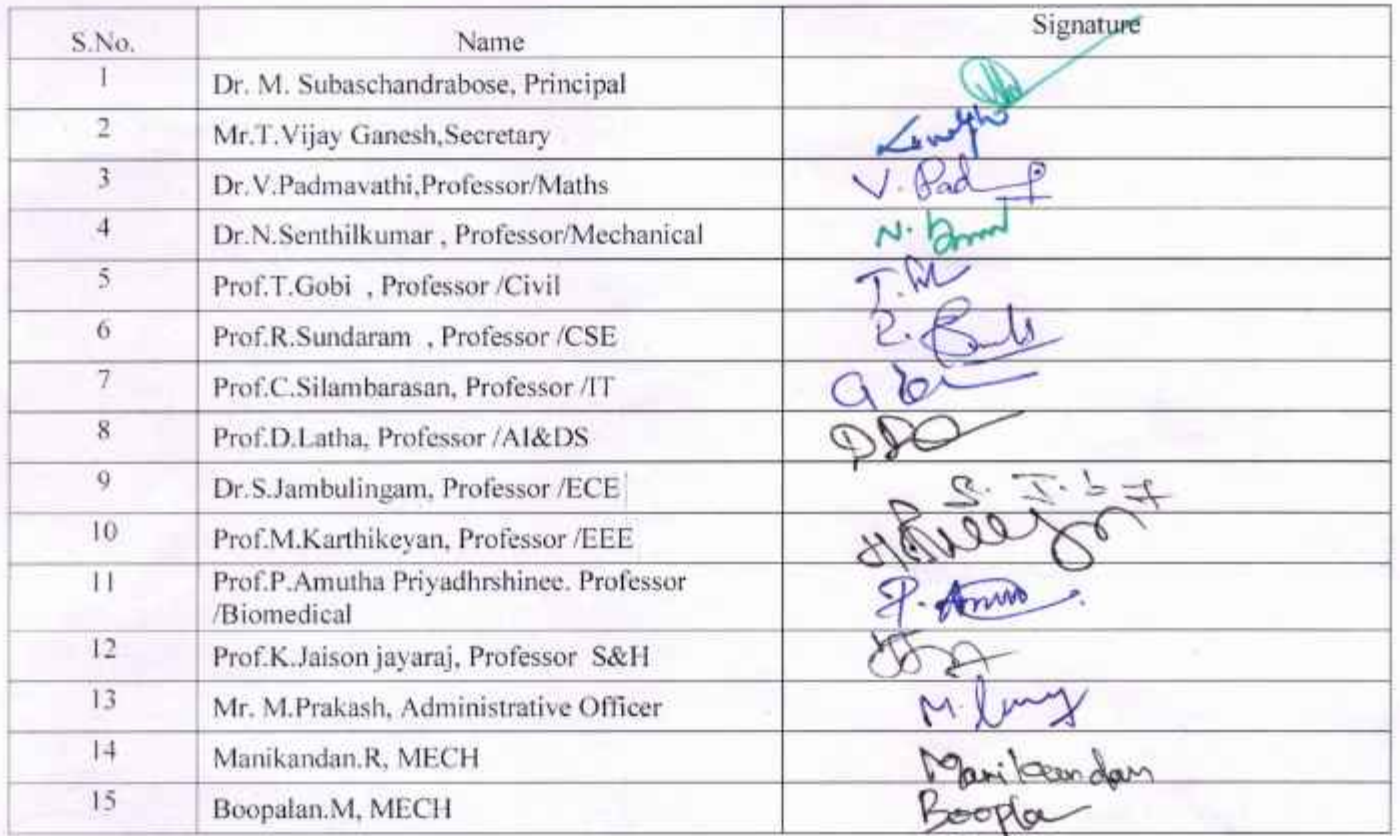 S.No. Name Signature
1 Dr. M. Subaschandrabose, Principal
2 Mr.T.Vijay Ganesh,Secretary
3 Dr.V.Padmavathi,Professor/Maths V. Pad
4 Dr.N.Senthilkumar , Professor/Mechanical N.
5 Prof.T.Gobi , Professor /Civil T.
6 Prof.R.Sundaram , Professor /CSE R.
7 Prof.C.Silambarasan, Professor /IT
8 Prof.D.Latha, Professor /AI&DS
9 Dr.S.Jambulingam, Professor /ECE S.
10 Prof.M.Karthikeyan, Professor /EEE
11 Prof.P.Amutha Priyadhrshinee. Professor
/Biomedical P.
12 Prof.K.Jaison jayaraj, Professor S&H
13 Mr. M.Prakash, Administrative Officer M.
14 Manikandan.R, MECH Manikandan
15 Boopalan.M, MECH Boopla